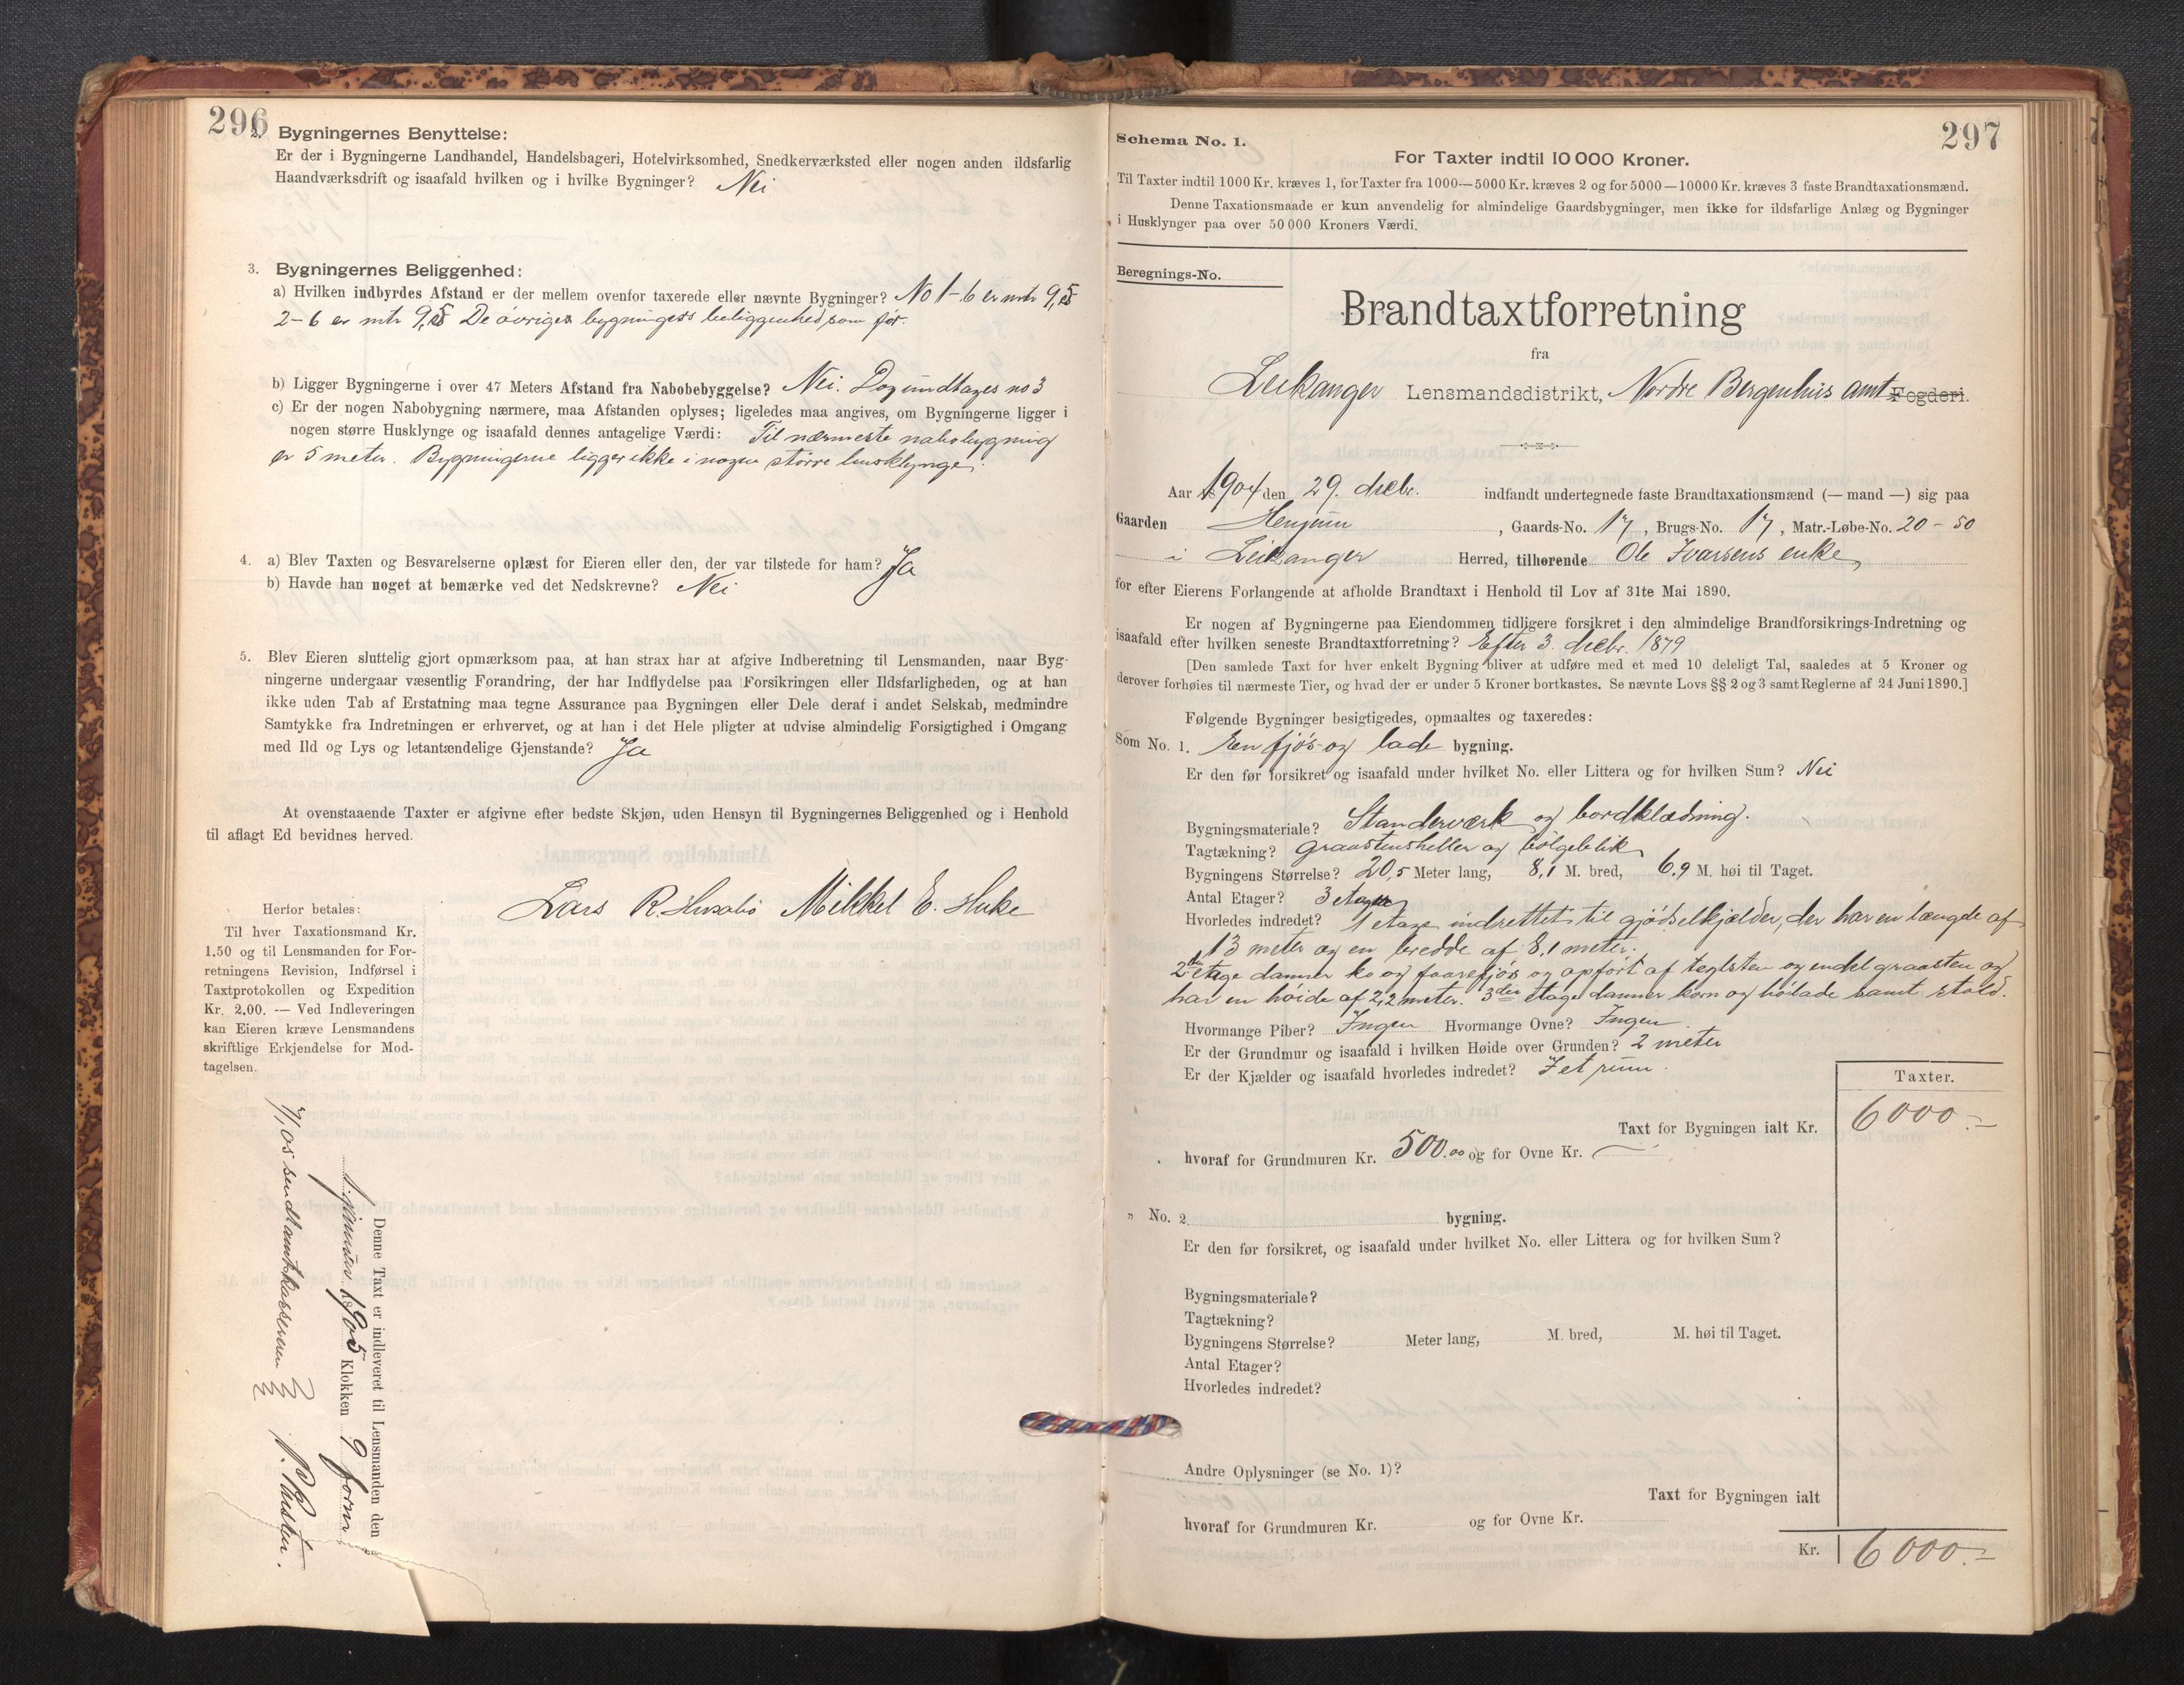 296
2. Bygningernes Benyttelse:
Er der i Bygningerne Landhandel, Handelsbageri, Hotelvirksomhed, Snedkerværksted eller nogen anden ildsfarlig
Haandværksdrift og isaafald hvilken og i hvilke Bygninger? Nei
3. Bygningernes Beliggenhed:
a) Hvilken indbyrdes Afstand er der mellem ovenfor taxerede eller nævnte Bygninger? No 1-6 er mtr 9,5
2-6 er mtr 9,5 De øvriges bygningers beliggenhed som før.
b) Ligger Bygningerne i over 47 Meters Afstand fra Nabobebyggelse? Nei. Dog undtages no 3
c) Er der nogen Nabobygning nærmere, maa Afstanden oplyses; ligeledes maa angives, om Bygningerne ligger i
nogen større Husklynge og isaafald dennes antagelige Værdi: Til nærmeste nabobygning
er 5 meter. Bygningerne ligger ikke i nogen større husklynge.
4. a) Blev Taxten og Besvarelserne oplæst for Eieren eller den, der var tilstede for ham? Ja
b) Havde han noget at bemærke ved det Nedskrevne? Nei
5. Blev Eieren sluttelig gjort opmærksom paa, at han strax har at afgive Indberetning til Lensmanden, naar Byg-
ningerne undergaar væsentlig Forandring, der har Indflydelse paa Forsikringen eller Ildsfarligheden, og at han
ikke uden Tab af Erstatning maa tegne Assurance paa Bygningen eller Dele deraf i andet Selskab, medmindre
Samtykke fra Indretningen er erhvervet, og at han i det Hele pligter at udvise almindelig Forsigtighed i Omgang
med Ild og Lys og letantændelige Gjenstande? Ja
At ovenstaaende Taxter er afgivne efter bedste Skjøn, uden Hensyn til Bygningernes Beliggenhed og i Henhold
til aflagt Ed bevidnes herved.
Lars R. Husabø Mikkel E. Huke
Herfor betales:
Til hver Taxationsmand Kr.
1.50 og til Lensmanden for For-
retningens Revision, Indførsel i
Taxtprotokollen og Expedition
Kr. 2.00. — Ved Indleveringen
kan Eieren kræve Lensmandens
skriftlige Erkjendelse for Mod-
tagelsen.
Denne Taxt er indleveret til Lensmanden den
januar 1905 Klokken 9 form
05 sendt amtskassereren
297
Schema No. 1.
For Taxter indtil 10 000 Kroner.
Til Taxter indtil 1000 Kr. kræves 1, for Taxter fra 1000—5000 Kr. kræves 2 og for 5000—10000 Kr. kræves 3 faste Brandtaxationsmænd.
Denne Taxationsmaade er kun anvendelig for almindelige Gaardsbygninger, men ikke for ildsfarlige Anlæg og Bygninger
i Husklynger paa over 50 000 Kroners Værdi.
Beregnings-No.
Brandtaxtforretning
fra
Leikanger Lensmandsdistrikt, Nordre Bergenhus amt Fogderi.
Aar 1904 den 29. decbr. indfandt undertegnede faste Brandtaxationsmænd (— mand —) sig paa
Gaarden Henjum, Gaards-No. 17, Brugs-No. 17, Matr.-Løbe-No. 20-50
i Leikanger Herred, tilhørende Ole Ivarsens enke,
for efter Eierens Forlangende at afholde Brandtaxt i Henhold til Lov af 31te Mai 1890.
Er nogen af Bygningerne paa Eiendommen tidligere forsikret i den almindelige Brandforsikrings-Indretning og
isaafald efter hvilken seneste Brandtaxtforretning? Efter 3. decbr. 1879
[Den samlede Taxt for hver enkelt Bygning bliver at udføre med et med 10 deleligt Tal, saaledes at 5 Kroner og
derover forhøies til nærmeste Tier, og hvad der er under 5 Kroner bortkastes. Se nævnte Lovs §§ 2 og 3 samt Reglerne af 24 Juni 1890.]
Følgende Bygninger besigtigedes, opmaaltes og taxeredes:
Som No. 1. En fjøs- og lade bygning.
Er den før forsikret og isaafald under hvilket No. eller Littera og for hvilken Sum? Nei
Bygningsmateriale? Standerværk og bordklædning.
Tagtækning? Graastensheller og bølgeblik
Bygningens Størrelse? 20,5 Meter lang, 8,1 M. bred, 6,9 M. høi til Taget.
Antal Etager? 3 etager
Hvorledes indredet? 1 etage indrettet til gjødselkjælder, der har en længde af
13 meter og en bredde af 8,1 meter.
2den etage danner ko og faarefjøs og opført af teglsten og endel graasten og
har en høide af 2,2 meter. 3die etage danner korn og hølade samt stald.
Hvormange Piber? Ingen Hvormange Ovne? Ingen
Er der Grundmur og isaafald i hvilken Høide over Grunden? 2 meter
Er der Kjælder og isaafald hvorledes indredet? I et rum.
Taxter.
Taxt for Bygningen ialt Kr. 6000.-
hvoraf for Grundmuren Kr. 500.00 og for Ovne Kr. —
„ No. 2 bygning.
Er den før forsikret, og isaafald under hvilket No. eller Littera og for hvilken Sum?
Bygningsmateriale?
Tagtækning?
Bygningens Størrelse? Meter lang, M. bred, M. høi til Taget.
Antal Etager?
Hvorledes indredet?
Andre Oplysninger (se No. 1)?
Taxt for Bygningen ialt
hvoraf for Grundmuren Kr. og for Ovne Kr.
Kr. 6000.-